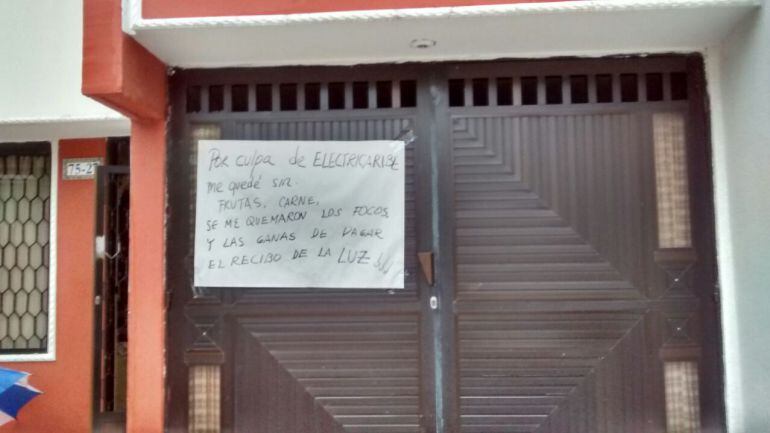 75-2
POR CULPA DE ELECTRICARIBE
ME QUEDÉ SIN.
FRUTAS, CARNE,
SE ME QUEMARON LOS FOCOS
Y LAS GANAS DE PAGAR
EL RECIBO DE LA LUZ